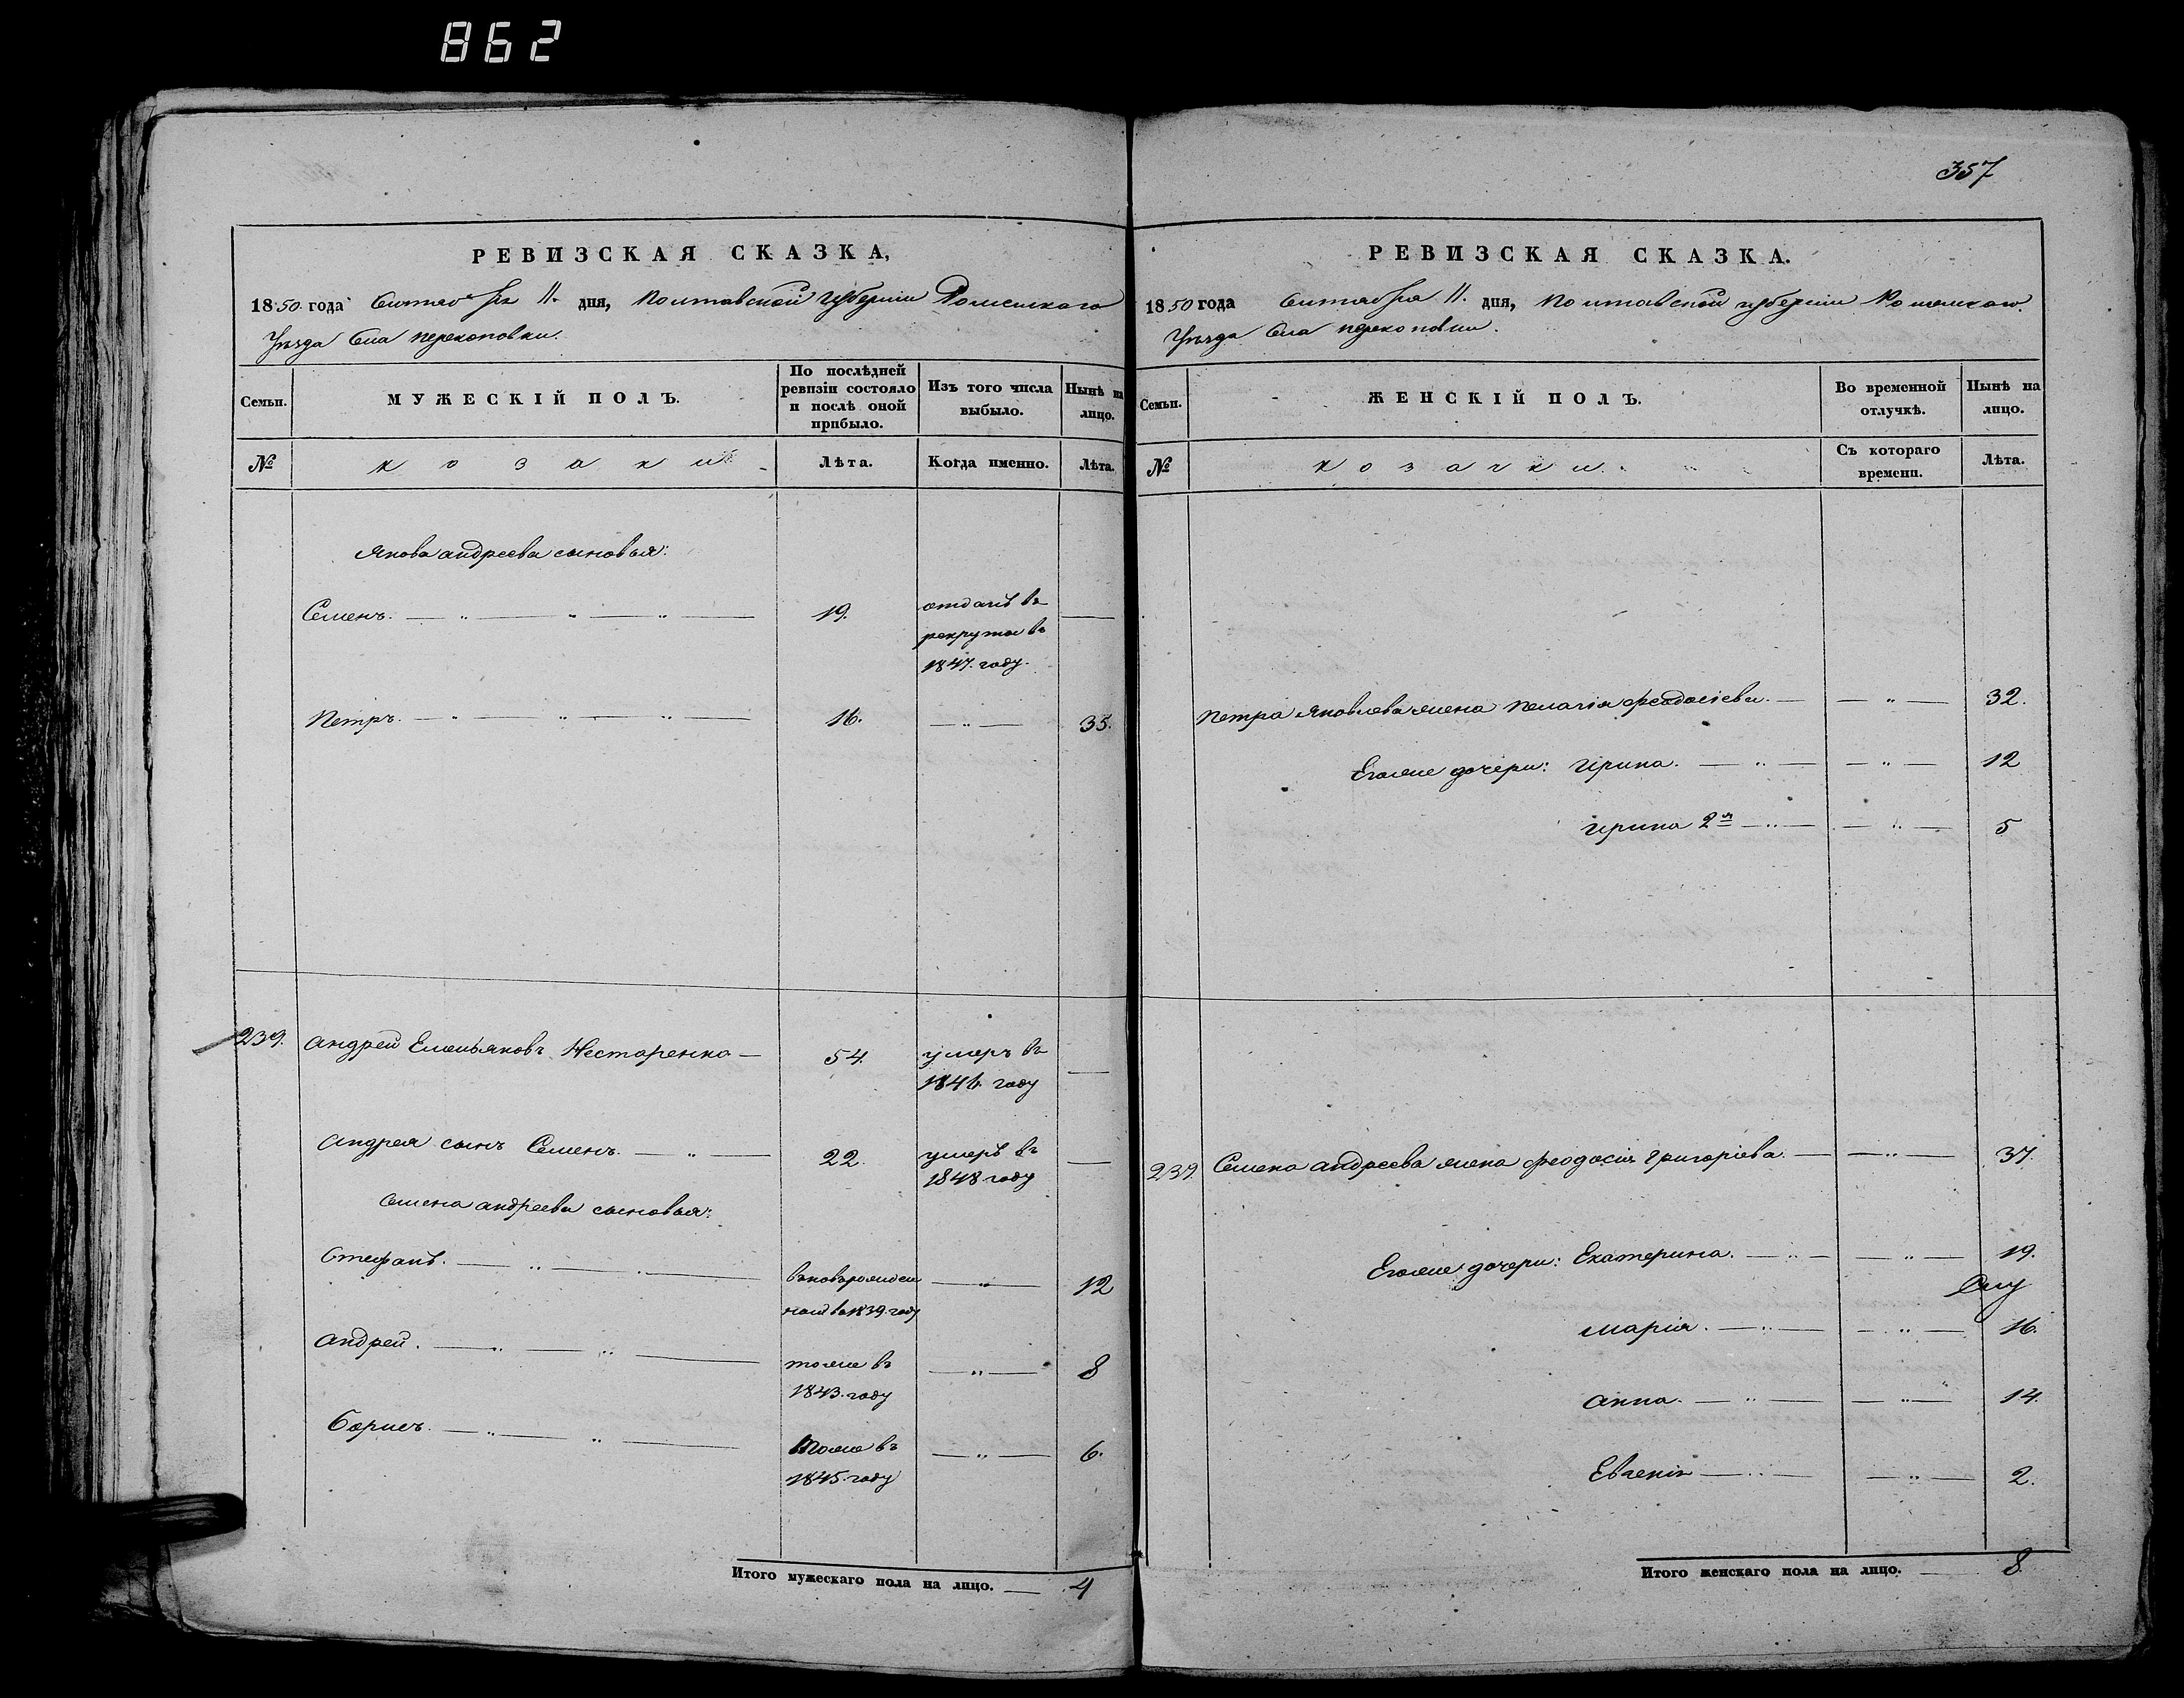 862
РЕВИЗСКАЯ СКАЗКА,
1850 года Сентября 11. дня, Полтавской губернии Роменскаго
Уѣзда Села Перекоповки.
Семьи.
МУЖЕСКІЙ ПОЛЪ.
По послѣдней ревизіи состояло и послѣ оной прибыло.
Изъ того числа выбыло.
Нынѣ на лицо.
№
козаки
Лѣта.
Когда именно.
Лѣта.
Якова Андреева сыновья:
Семенъ. 19. отданъ въ
рекруты въ
1847. году.
Петръ. 16. 35.
239. Андрей Емельяновъ Нестаренко 54. умеръ въ
1846 году
Андрея сынъ Семенъ. 22. умеръ въ
1848 году
Семена Андреева сыновья:
Стефанъ. вновьрожден
ный въ 1839. году 12
Андрей. тоже въ
1843. году 8
Борисъ. тоже въ
1845. году 6.
Итого мужескаго пола на лицо. 4
357
РЕВИЗСКАЯ СКАЗКА.
1850 года Сентября 11. дня, Полтавской губерніи Роменскаго
Уѣзда Села Перекоповки.
Семьи.
ЖЕНСКІЙ ПОЛЪ.
Во временной отлучкѣ.
Нынѣ на лицо.
№
козачки.
Съ котораго времени.
Лѣта.
Петра Яковлева жена Пелагія Феодосіева. 32.
Егоже дочери: Ирина. 12
Ирина 2я 5
239. Семена Андреева жена Феодосія Григоріева. 37.
Егоже дочери: Екатерина. 19.
Марія. 16.
Анна. 14.
Евгенія 2.
Итого женскаго пола на лицо. 8